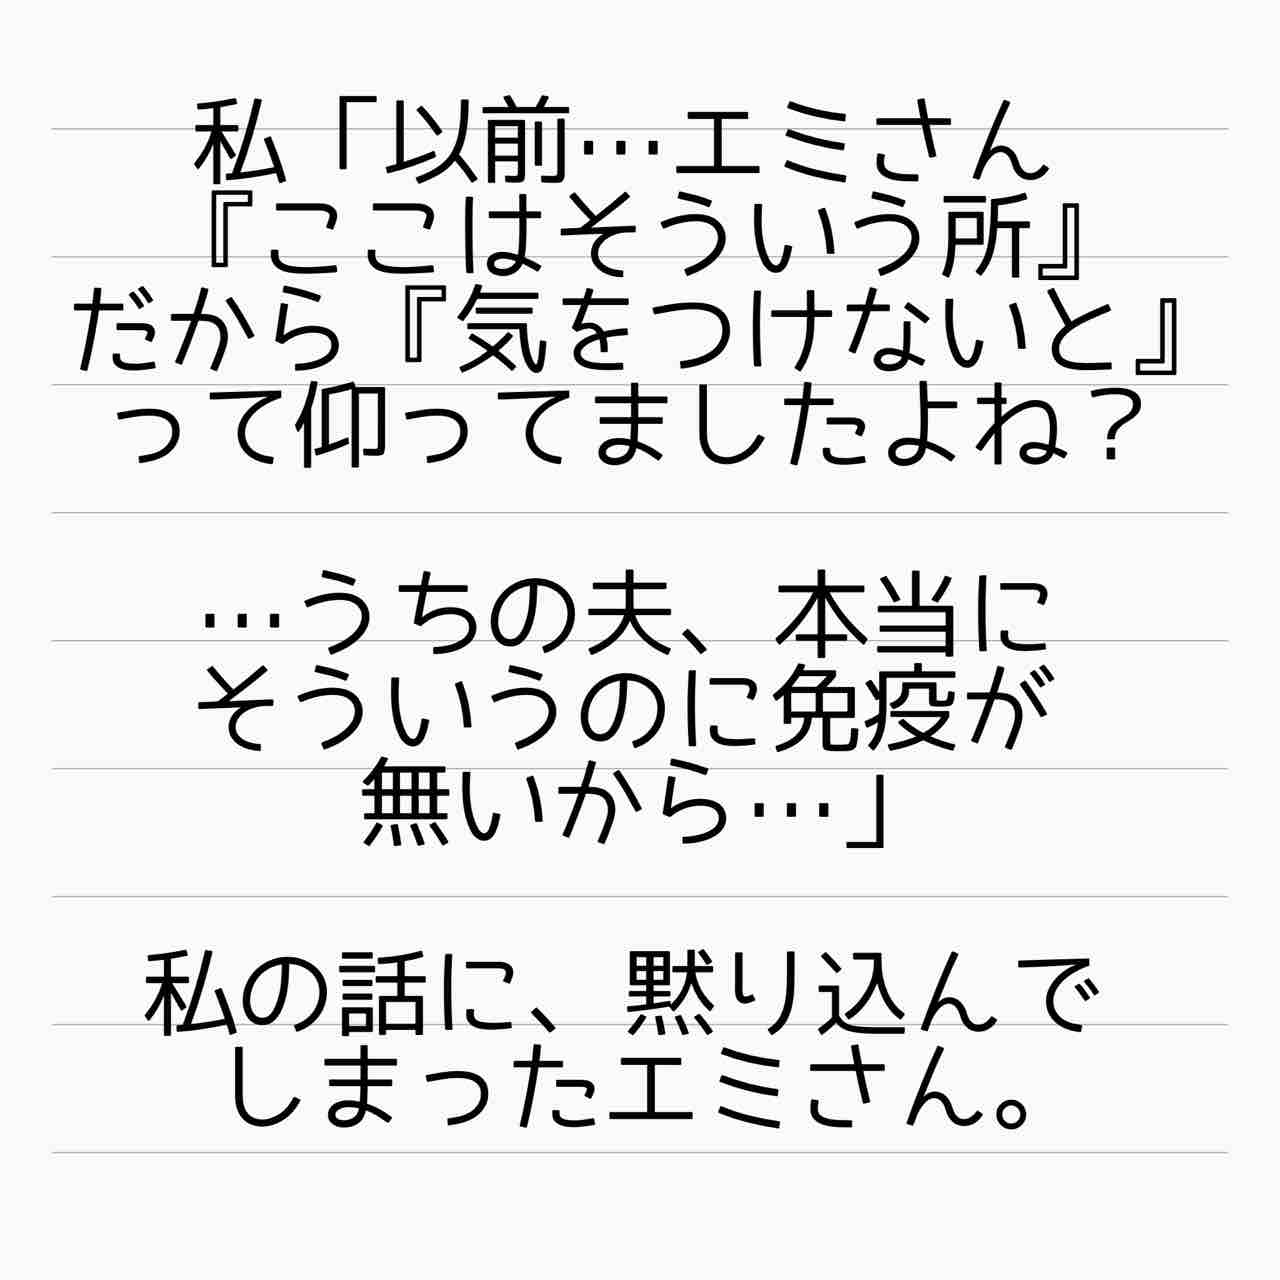 私「以前…エミさん
『ここはそういう所』
だから『気をつけないと』
って仰ってましたよね？
…うちの夫、本当に
そういうのに免疫が
無いから…」
私の話に、黙り込んで
しまったエミさん。